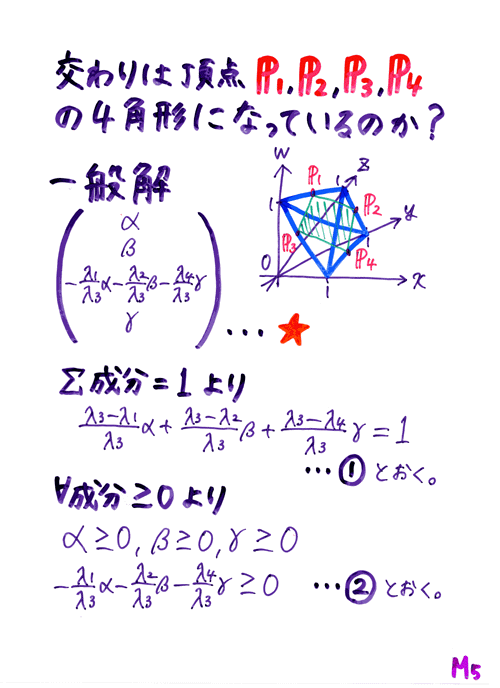 交わりは頂点 ℙ₁, ℙ₂, ℙ₃, ℙ₄
の4角形になっているのか?
一般解
α
β
-λ₁/λ₃ α - λ₂/λ₃ β - λ₄/λ₃ γ
γ
… ★
W
1
ℙ₁
1
z
ℙ₂
y
ℙ₃
1
ℙ₄
O
1
x
Σ成分 = 1 より
(λ₃-λ₁)/λ₃ α + (λ₃-λ₂)/λ₃ β + (λ₃-λ₄)/λ₃ γ = 1
… ① とおく。
∀成分 ≥ 0 より
α ≥ 0, β ≥ 0, γ ≥ 0
-λ₁/λ₃ α - λ₂/λ₃ β - λ₄/λ₃ γ ≥ 0 … ② とおく。
M5